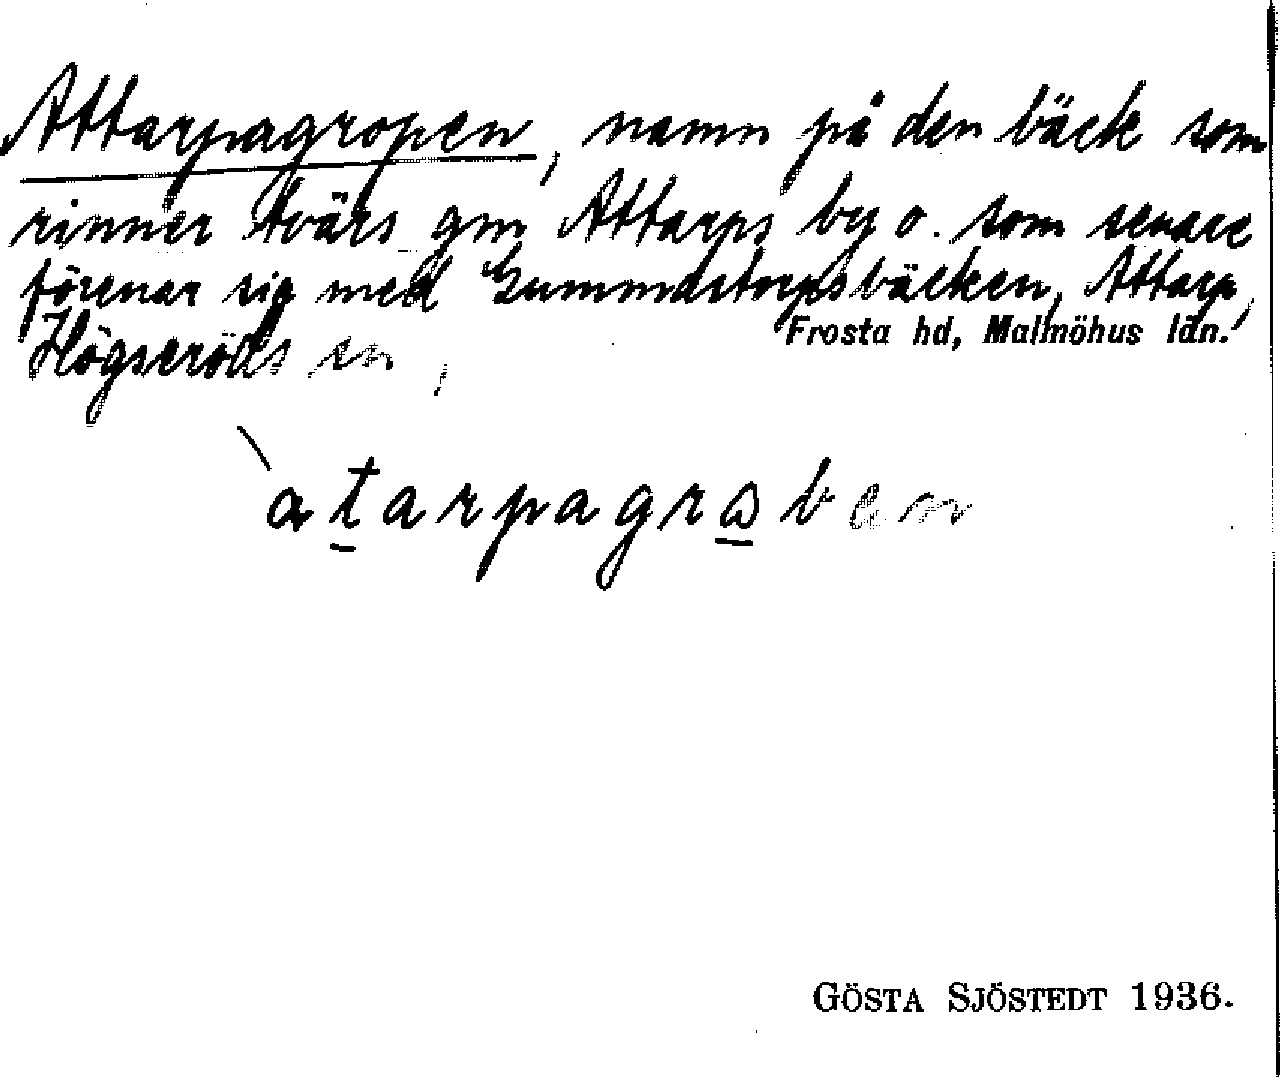 Attarpagropen, namn på den bäck som
rinner tvärs gm Attarps by o. som senare
förenar sig med Gummastorpsbäcken, Attarp,
Högseröds sn, Frosta hd, Malmöhus län.
GÖSTA SJÖSTEDT 1936.